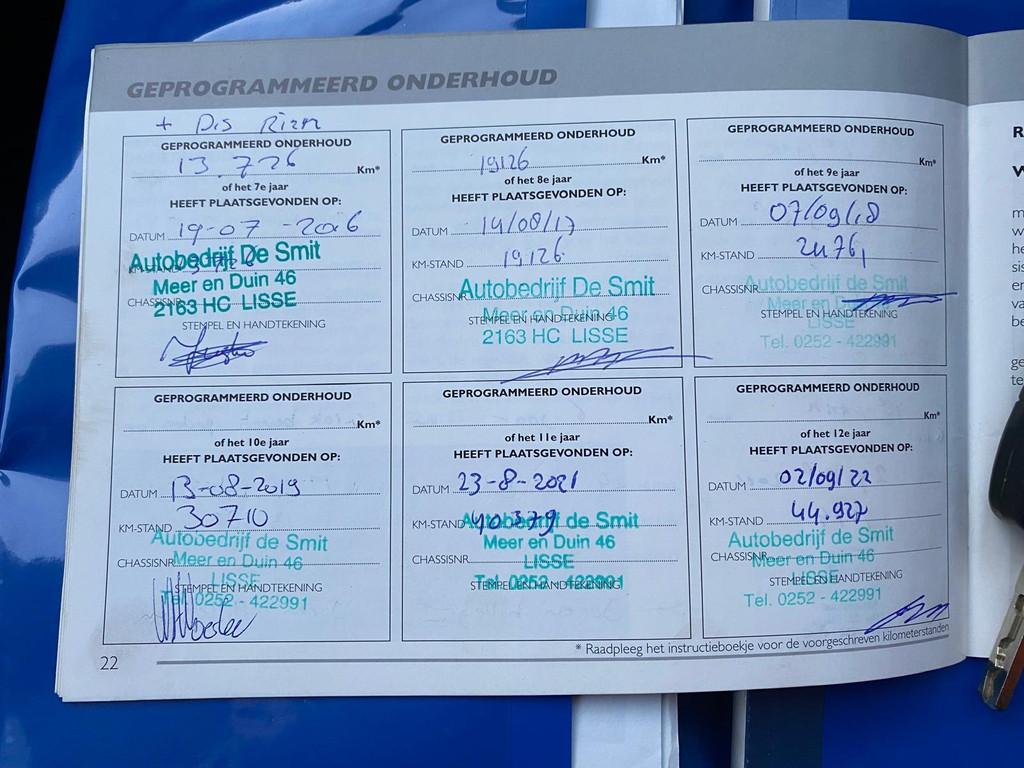 GEPROGRAMMEERD ONDERHOUD
+ Dis Riem
GEPROGRAMMEERD ONDERHOUD
13.726 Km*
of het 7e jaar
HEEFT PLAATSGEVONDEN OP:
DATUM 19-07-2016
Autobedrijf De Smit
Meer en Duin 46
CHASSISNR.
2163 HC LISSE
STEMPEL EN HANDTEKENING
GEPROGRAMMEERD ONDERHOUD
19126 Km*
of het 8e jaar
HEEFT PLAATSGEVONDEN OP:
DATUM 14/08/17
KM-STAND 19126
CHASSISNR
Autobedrijf De Smit
Meer en Duin 46
STEMPEL EN HANDTEKENING
2163 HC LISSE
GEPROGRAMMEERD ONDERHOUD
Km*
of het 9e jaar
HEEFT PLAATSGEVONDEN OP:
DATUM 07/09/18
KM-STAND 24761
CHASSISNR
Autobedrijf de Smit
Meer en D
STEMPEL EN HANDTEKENING
LISSE
Tel. 0252 - 422991
GEPROGRAMMEERD ONDERHOUD
Km*
of het 10e jaar
HEEFT PLAATSGEVONDEN OP:
DATUM 13-08-2019
KM-STAND 30710
Autobedrijf de Smit
CHASSISNR
Meer en Duin 46
LISSE
STEMPEL EN HANDTEKENING
Tel. 0252 - 422991
GEPROGRAMMEERD ONDERHOUD
Km*
of het 11e jaar
HEEFT PLAATSGEVONDEN OP:
DATUM 23-8-2021
KM-STAND 40379
Autobedrijf de Smit
Meer en Duin 46
CHASSISNR.
LISSE
STEMPEL EN HANDTEKENING
Tel. 0252 - 422991
GEPROGRAMMEERD ONDERHOUD
Km*
of het 12e jaar
HEEFT PLAATSGEVONDEN OP:
DATUM 02/09/22
KM-STAND 44.927
Autobedrijf de Smit
CHASSISNR.
Meer en Duin 46
LISSE
STEMPEL EN HANDTEKENING
Tel. 0252 - 422991
* Raadpleeg het instructieboekje voor de voorgeschreven kilometerstanden
22